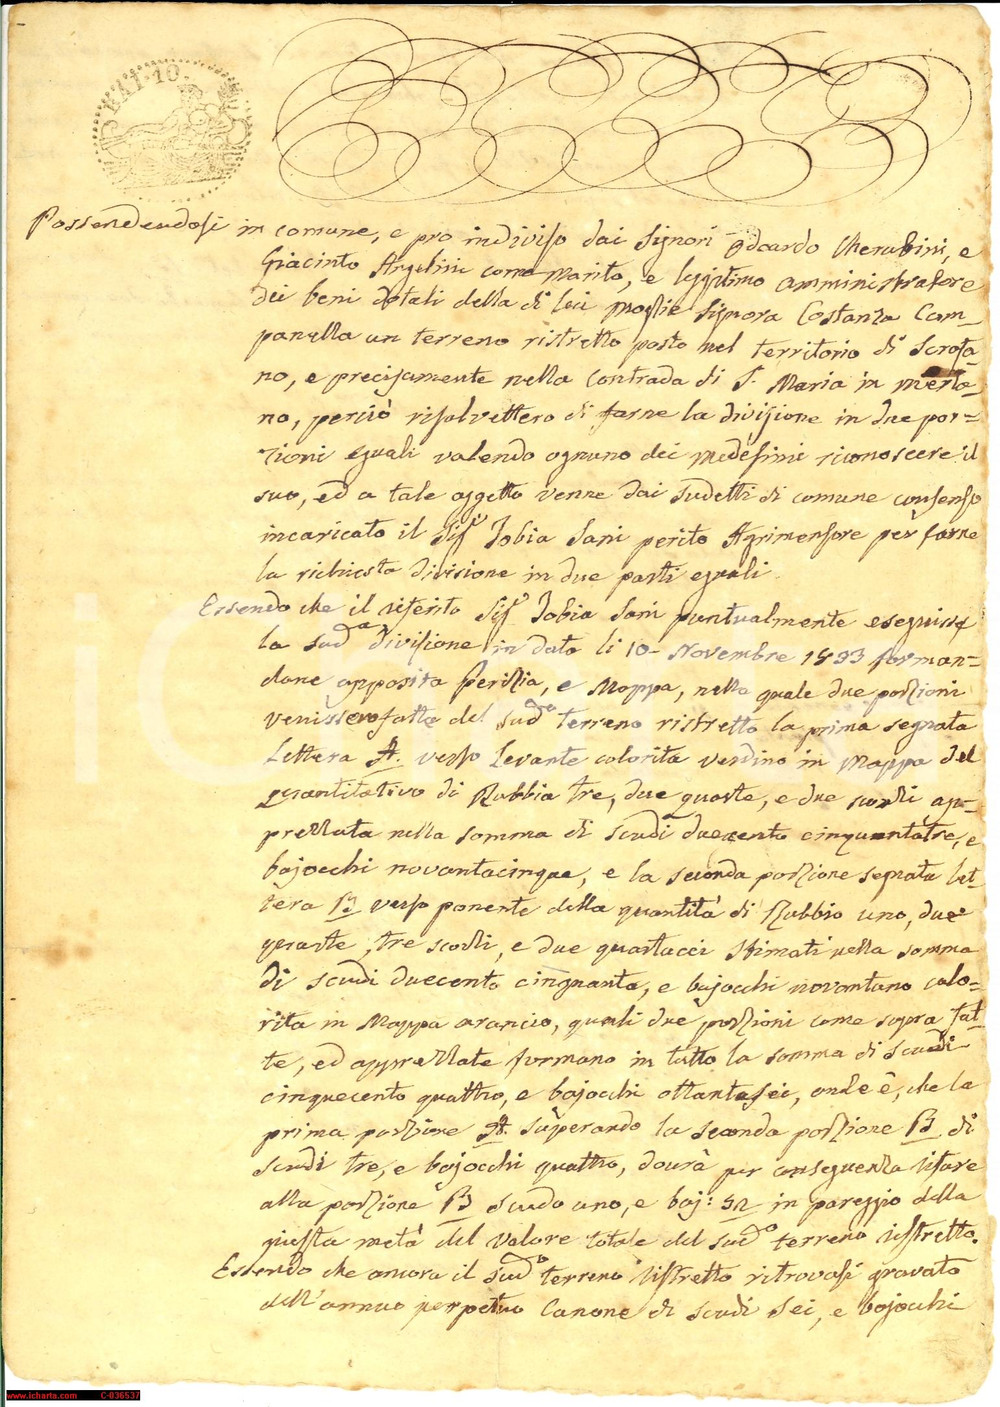 BAI. 10.
Possendendosi in comune, e pro indiviso dai Signori Odoardo Cherubini, e
Giacinto Angelini come marito, e legittimo amministratore
dei beni dotali della di lui moglie Signora Costanza Cam=
panella un terreno ristretto posto nel territorio di Scrofa=
no, e precisamente nella contrada di S. Maria in Merla=
no, perciò risolvettero di farne la divisione in due por=
zioni eguali volendo ognuno dei medesimi riconoscere il
suo, ed a tale oggetto venne dai sudetti di comune consenso
incaricato il Sigr Tobia Sani perito Agrimensore per farne
la richiesta divisione in due parti eguali.
Essendo che il riferito Sigr Tobia Sani puntualmente eseguisse
la sudа divisione in data li 10 Novembre 1833 forman=
done apposita Perizia, e Mappa, nella quale due porzioni
venissero fatte del sudo terreno ristretto la prima segnata
Lettera A. verso Levante colorita verdino in Mappa del
quantitativo di Rubbia tre, due quarte, e due scorzi ap=
prezzata nella somma di scudi duecento cinquantatre, e
bajocchi novantacinque, e la seconda porzione segnata let=
tera B verso ponente della quantità di Rubbio uno, due
quarte, tre scorzi, e due quartucci stimati nella somma
di scudi duecento cinquanta, e bajocchi novantuno colo=
rita in Mappa arancio, quali due porzioni come sopra fat=
te, ed apprezzate formano in tutto la somma di scudi
cinquecento quattro, e bajocchi ottantasei, onde è, che la
prima porzione A. superando la seconda porzione B di
scudi tre, e bajocchi quattro, dovrà per conseguenza rifare
alla porzione B scudo uno, e baj: 52 in pareggio della
giusta metà del valore totale del sudo terreno ristretto.
Essendo che ancora il sudo terreno ristretto ritrovasi gravato
dell'annuo perpetuo Canone di scudi sei, e bajocchi
www.icharta.com C-036537